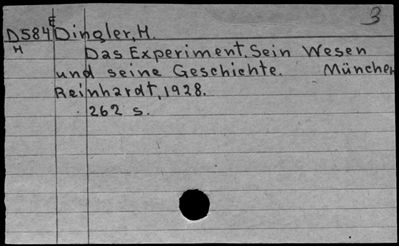 3
D584E Dingler, H.
H Das Experiment. Sein Wesen
und seine Geschichte. München
Reinhardt, 1928.
262 s.